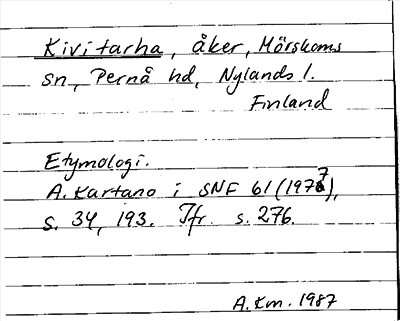 Kivitarha, åker, Mörskoms
sn, Pernå hd, Nylands l.
Finland
Etymologi.
A. Kartano i SNF 61 (1977),
s. 34, 193. Jfr. s. 276.
A.Km. 1987